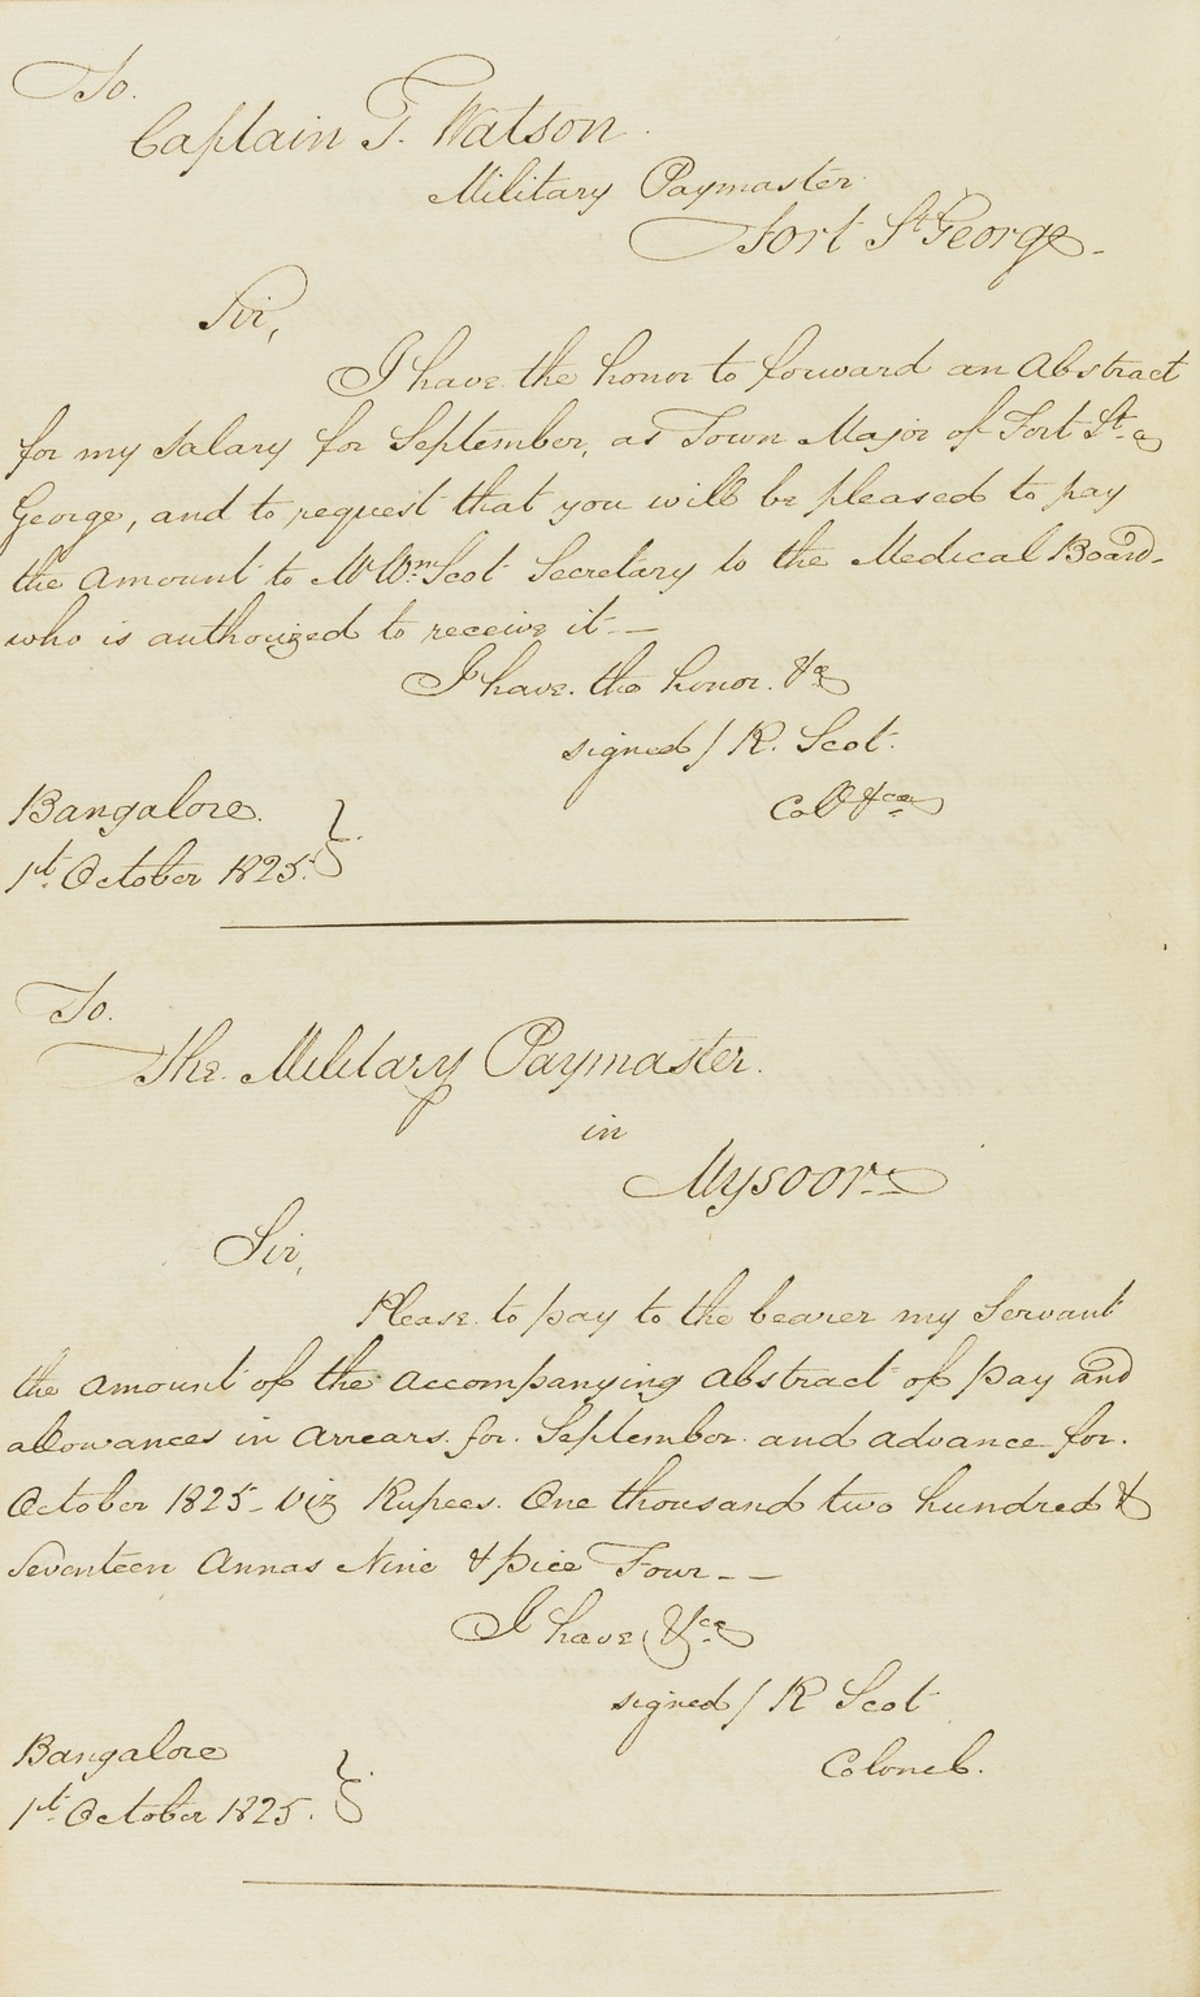 To.
Captain T. Watson.
Military Paymaster
Fort St George.
Sir,
I have the honor to forward an Abstract
for my Salary for September, as Town Major of Fort St.
George, and to request that you will be pleased to pay
the Amount to Mr Wm: Scot Secretary to the Medical Board
who is authorized to receive it—
I have the honor. &ca
signed / R. Scot.
Coll &ca
Bangalore.
1st. October 1825.
To.
The Military Paymaster.
in
Mysoor
Sir,
Please to pay to the bearer my Servant
the Amount of the Accompanying Abstract of pay and
allowances in Arrears for September and advance for
October 1825 – Viz Rupees. One thousand two hundred &
Seventeen Annas Nine & pice Four – –
I have &ca
signed / R Scot
Colonel.
Bangalore
1st. October 1825.